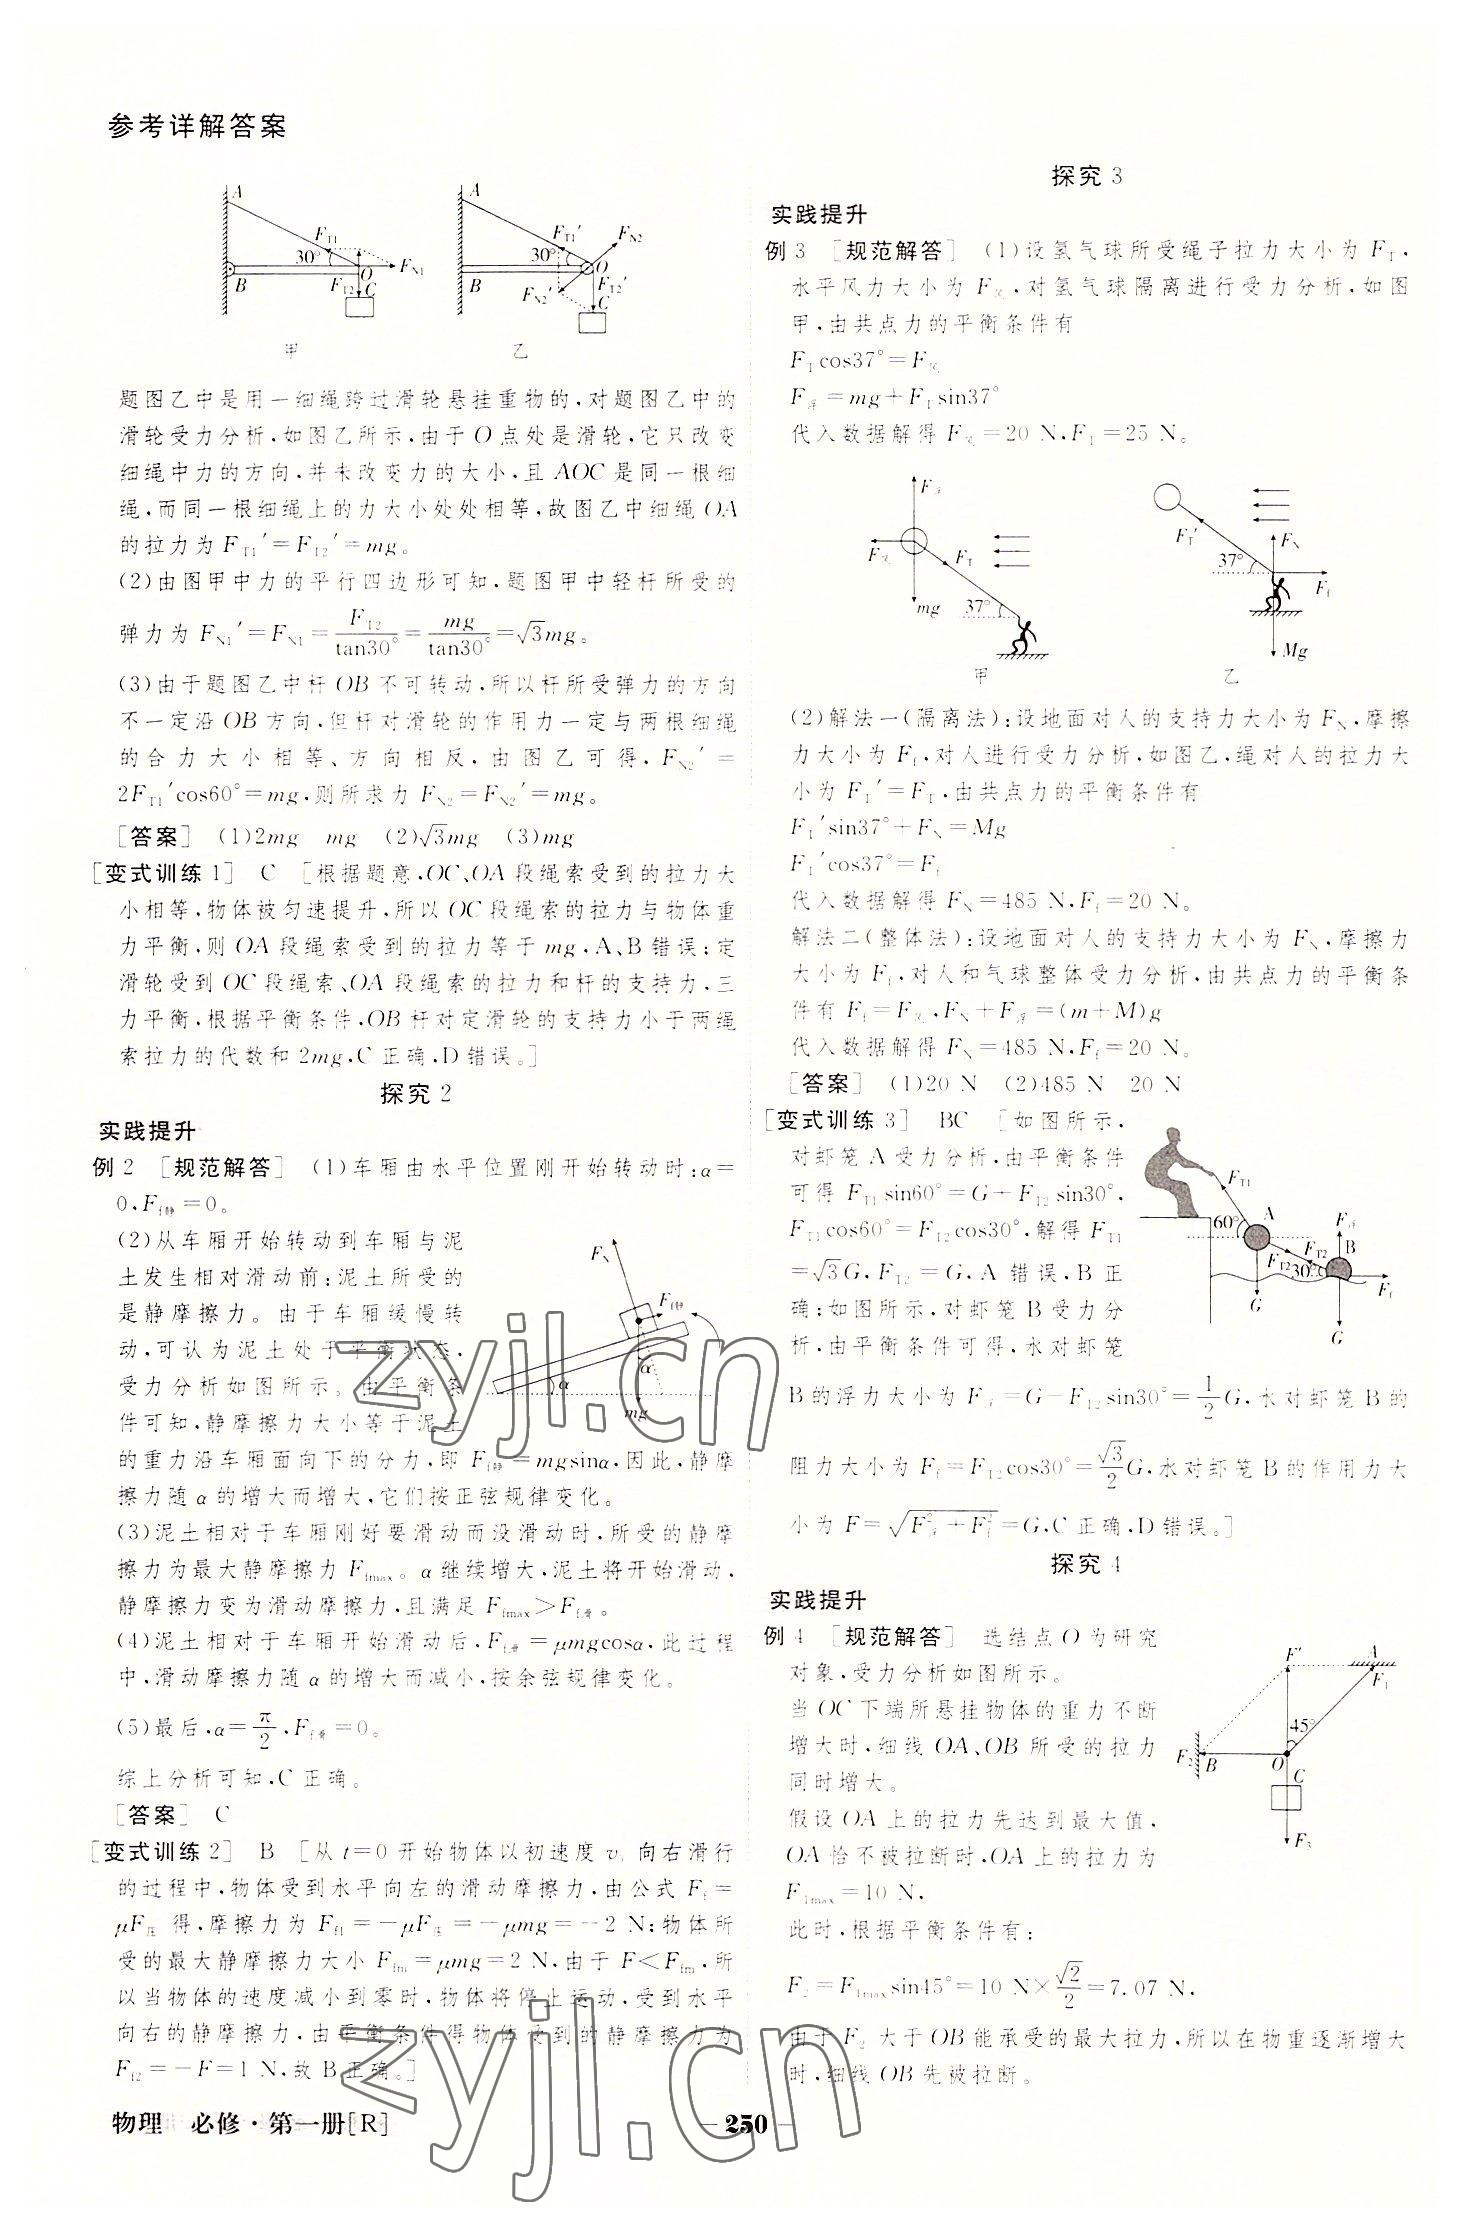 参考详解答案
A
F_T1
30°
O
F_N1
B
F_T2
C
甲
A
F_T1′
F_N2
30°
O
B
F_N2′
C
F_T2′
乙
题图乙中是用一细绳跨过滑轮悬挂重物的,对题图乙中的
滑轮受力分析,如图乙所示,由于O点处是滑轮,它只改变
细绳中力的方向,并未改变力的大小,且AOC是同一根细
绳,而同一根细绳上的力大小处处相等,故图乙中细绳OA
的拉力为F_T1′=F_T2′=mg。
(2)由图甲中力的平行四边形可知,题图甲中轻杆所受的
弹力为F_N1′=F_N1=F_T2/tan30°=mg/tan30°=√3mg。
(3)由于题图乙中杆OB不可转动,所以杆所受弹力的方向
不一定沿OB方向,但杆对滑轮的作用力一定与两根细绳
的合力大小相等、方向相反,由图乙可得,F_N2′=
2F_T1′cos60°=mg,则所求力F_N2=F_N2′=mg。
[答案] (1)2mg mg (2)√3mg (3)mg
[变式训练1] C [根据题意,OC、OA段绳索受到的拉力大
小相等,物体被匀速提升,所以OC段绳索的拉力与物体重
力平衡,则OA段绳索受到的拉力等于mg,A、B错误;定
滑轮受到OC段绳索、OA段绳索的拉力和杆的支持力,三
力平衡,根据平衡条件,OB杆对定滑轮的支持力小于两绳
索拉力的代数和2mg,C正确,D错误。]
探究2
实践提升
例2 [规范解答] (1)车厢由水平位置刚开始转动时:α=
0,F_f静=0。
(2)从车厢开始转动到车厢与泥
土发生相对滑动前:泥土所受的
是静摩擦力。由于车厢缓慢转
动,可认为泥土处于平衡状态,
受力分析如图所示。由平衡条
件可知,静摩擦力大小等于泥土
F_N
F_f静
α
α
mg
的重力沿车厢面向下的分力,即F_f静=mgsinα,因此,静摩
擦力随α的增大而增大,它们按正弦规律变化。
(3)泥土相对于车厢刚好要滑动而没滑动时,所受的静摩
擦力为最大静摩擦力F_fmax。α继续增大,泥土将开始滑动,
静摩擦力变为滑动摩擦力,且满足F_fmax>F_f滑。
(4)泥土相对于车厢开始滑动后,F_f滑=μmgcosα,此过程
中,滑动摩擦力随α的增大而减小,按余弦规律变化。
(5)最后,α=π/2,F_f滑=0。
综上分析可知,C正确。
[答案] C
[变式训练2] B [从t=0开始物体以初速度v₀向右滑行
的过程中,物体受到水平向左的滑动摩擦力,由公式F_f=
μF_压得,摩擦力为F_f1=-μF_压=-μmg=-2 N;物体所
受的最大静摩擦力大小F_fm=μmg=2 N,由于F<F_fm,所
以当物体的速度减小到零时,物体将停止运动,受到水平
向右的静摩擦力,由平衡条件得物体受到的静摩擦力为
F_f2=-F=1 N,故B正确。]
探究3
实践提升
例3 [规范解答] (1)设氢气球所受绳子拉力大小为F_T,
水平风力大小为F_风,对氢气球隔离进行受力分析,如图
甲,由共点力的平衡条件有
F_Tcos37°=F_风
F_浮=mg+F_Tsin37°
代入数据解得F_风=20 N,F_T=25 N。
F_浮
F_风
F_T
mg
37°
甲
F_T′
F_N
37°
F_f
Mg
乙
(2)解法一(隔离法):设地面对人的支持力大小为F_N,摩擦
力大小为F_f,对人进行受力分析,如图乙,绳对人的拉力大
小为F_T′=F_T,由共点力的平衡条件有
F_T′sin37°+F_N=Mg
F_T′cos37°=F_f
代入数据解得F_N=485 N,F_f=20 N。
解法二(整体法):设地面对人的支持力大小为F_N,摩擦力
大小为F_f,对人和气球整体受力分析,由共点力的平衡条
件有F_f=F_风,F_N+F_浮=(m+M)g
代入数据解得F_N=485 N,F_f=20 N。
[答案] (1)20 N (2)485 N 20 N
[变式训练3] BC [如图所示,
对虾笼A受力分析,由平衡条件
可得F_T1sin60°=G+F_T2sin30°,
F_T1cos60°=F_T2cos30°,解得F_T1
=√3G,F_T2=G,A错误,B正
确;如图所示,对虾笼B受力分
析,由平衡条件可得,水对虾笼
F_T1
60°
A
F_浮
F_T2
B
F_T2
30°
F_f
G
G
B的浮力大小为F_浮=G-F_T2sin30°=1/2G,水对虾笼B的
阻力大小为F_f=F_T2cos30°=√3/2G,水对虾笼B的作用力大
小为F=√(F_浮²+F_f²)=G,C正确,D错误。]
探究4
实践提升
例4 [规范解答] 选结点O为研究
对象,受力分析如图所示。
当OC下端所悬挂物体的重力不断
增大时,细线OA、OB所受的拉力
同时增大。
假设OA上的拉力先达到最大值,
OA恰不被拉断时,OA上的拉力为
F_1max=10 N,
此时,根据平衡条件有:
F′
A
F₁
45°
F₂
B
O
C
F₃
F₂=F_1maxsin45°=10 N×√2/2=7.07 N,
由于F₂大于OB能承受的最大拉力,所以在物重逐渐增大
时,细线OB先被拉断。
物理 必修·第一册[R]
250
zyjl.cn
zyjl.cn